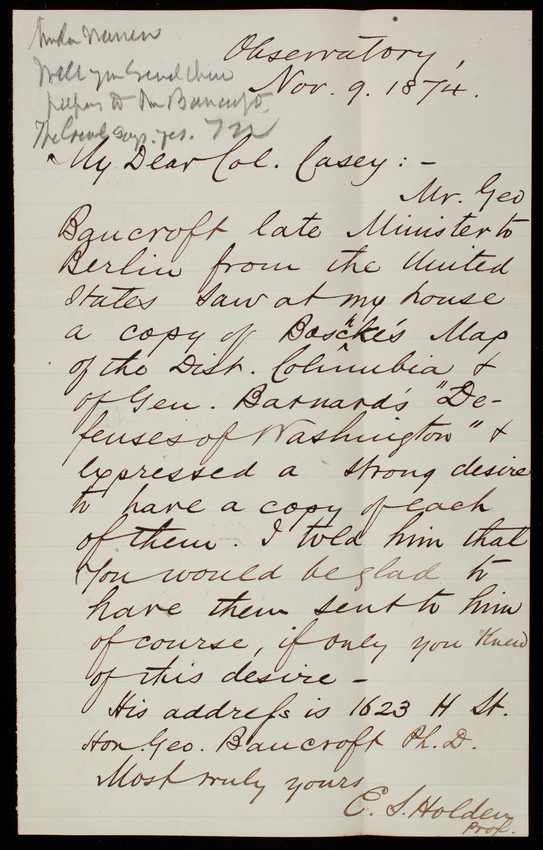 Will you send these
papers to Mr Bancroft.
The Genl says, yes.
Observatory,
Nov. 9. 1874.
My Dear Col. Casey: -
Mr. Geo
Bancroft late Minister to
Berlin from the United
States saw at my house
a copy of Boschke's Map
of the Dist. Columbia &
of Gen. Barnard's "De-
fenses of Washington" &
expressed a strong desire
to have a copy of each
of them. I told him that
You would be glad to
have them sent to him
of course, if only you knew
of this desire -
His address is 1623 H St.
Hon. Geo. Bancroft Ph. D.
Most truly yours
E. S. Holden
Prof.